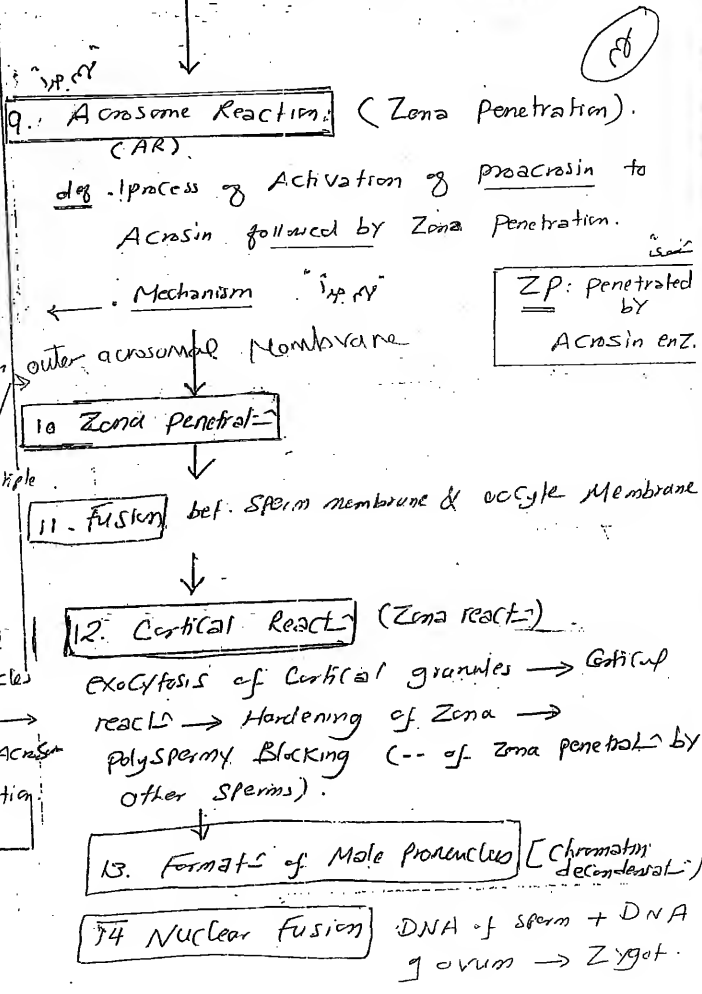 9. Acrosome Reaction. (Zona penetration).
(AR).
def. process of Activation of proacrosin to
Acrosin followed by Zona Penetration.
. Mechanism
ZP: penetrated
by
Acrosin enz.
outer acrosomal Membrane
10 Zona Penetrat
tiple
11. Fusion bet. sperm membrane & oocyte Membrane
12. Cortical React (Zona react).
cles
exocytosis of Cortical granules → Cortical
react → Hardening of Zona →
Acrosin
polyspermy Blocking (-- of Zona penetrat by
tion.
other sperms).
13. Format of Male Pronucleus [Chromatin
decondensat)
14 Nuclear Fusion DNA of sperm + DNA
of ovum → Zygot.